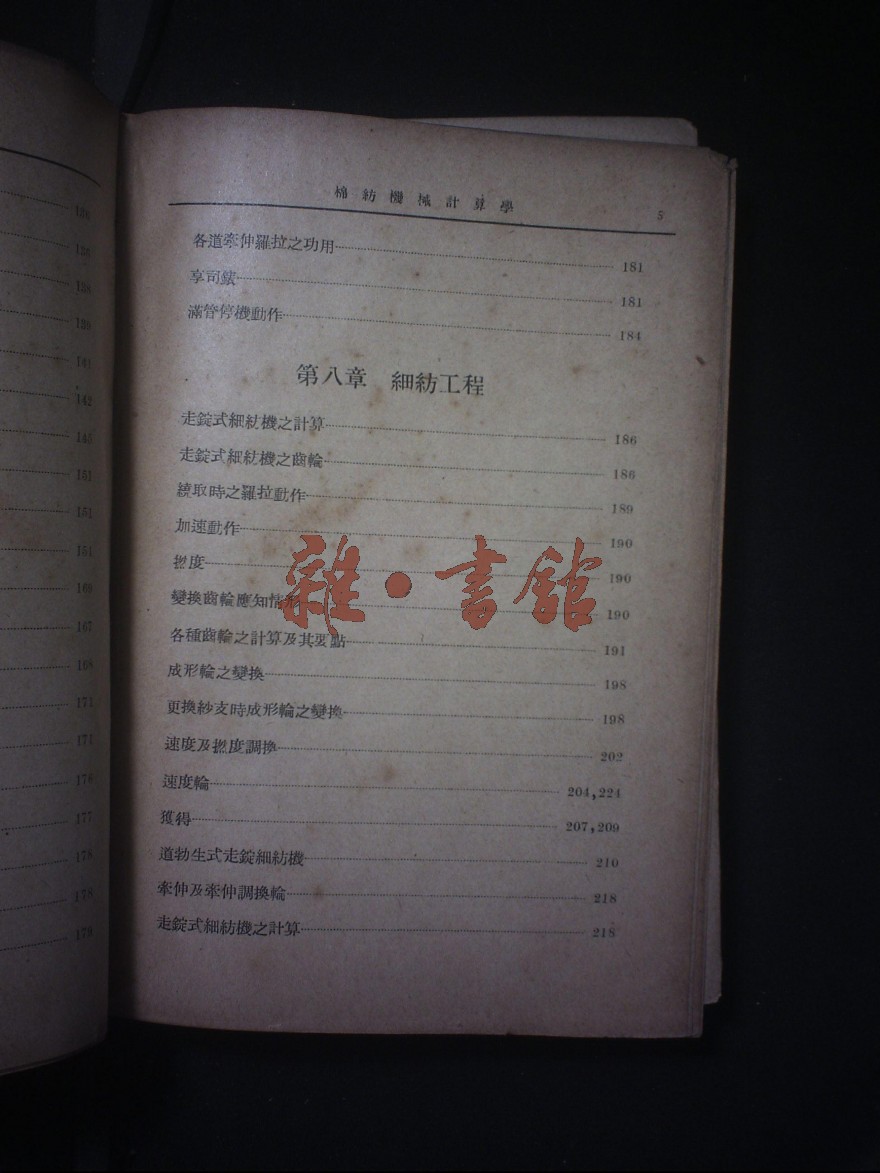 138
138
138
139
141
142
145
151
151
151
166
167
169
171
171
176
177
178
178
179
棉紡機械計算學 5
各道牽伸羅拉之功用 181
享司錶 181
滿管停機動作 184
第八章 細紡工程
走錠式細紡機之計算 186
走錠式細紡機之齒輪 186
繞取時之羅拉動作 189
加速動作 190
撚度 190
變換齒輪應知情形 190
各種齒輪之計算及其要點 191
成形輪之變換 198
更換紗支時成形輪之變換 198
速度及撚度調換 202
速度輪 204,224
獲得 207,209
道勃生式走錠細紡機 210
牽伸及牽伸調換輪 218
走錠式細紡機之計算 218
雜·書館